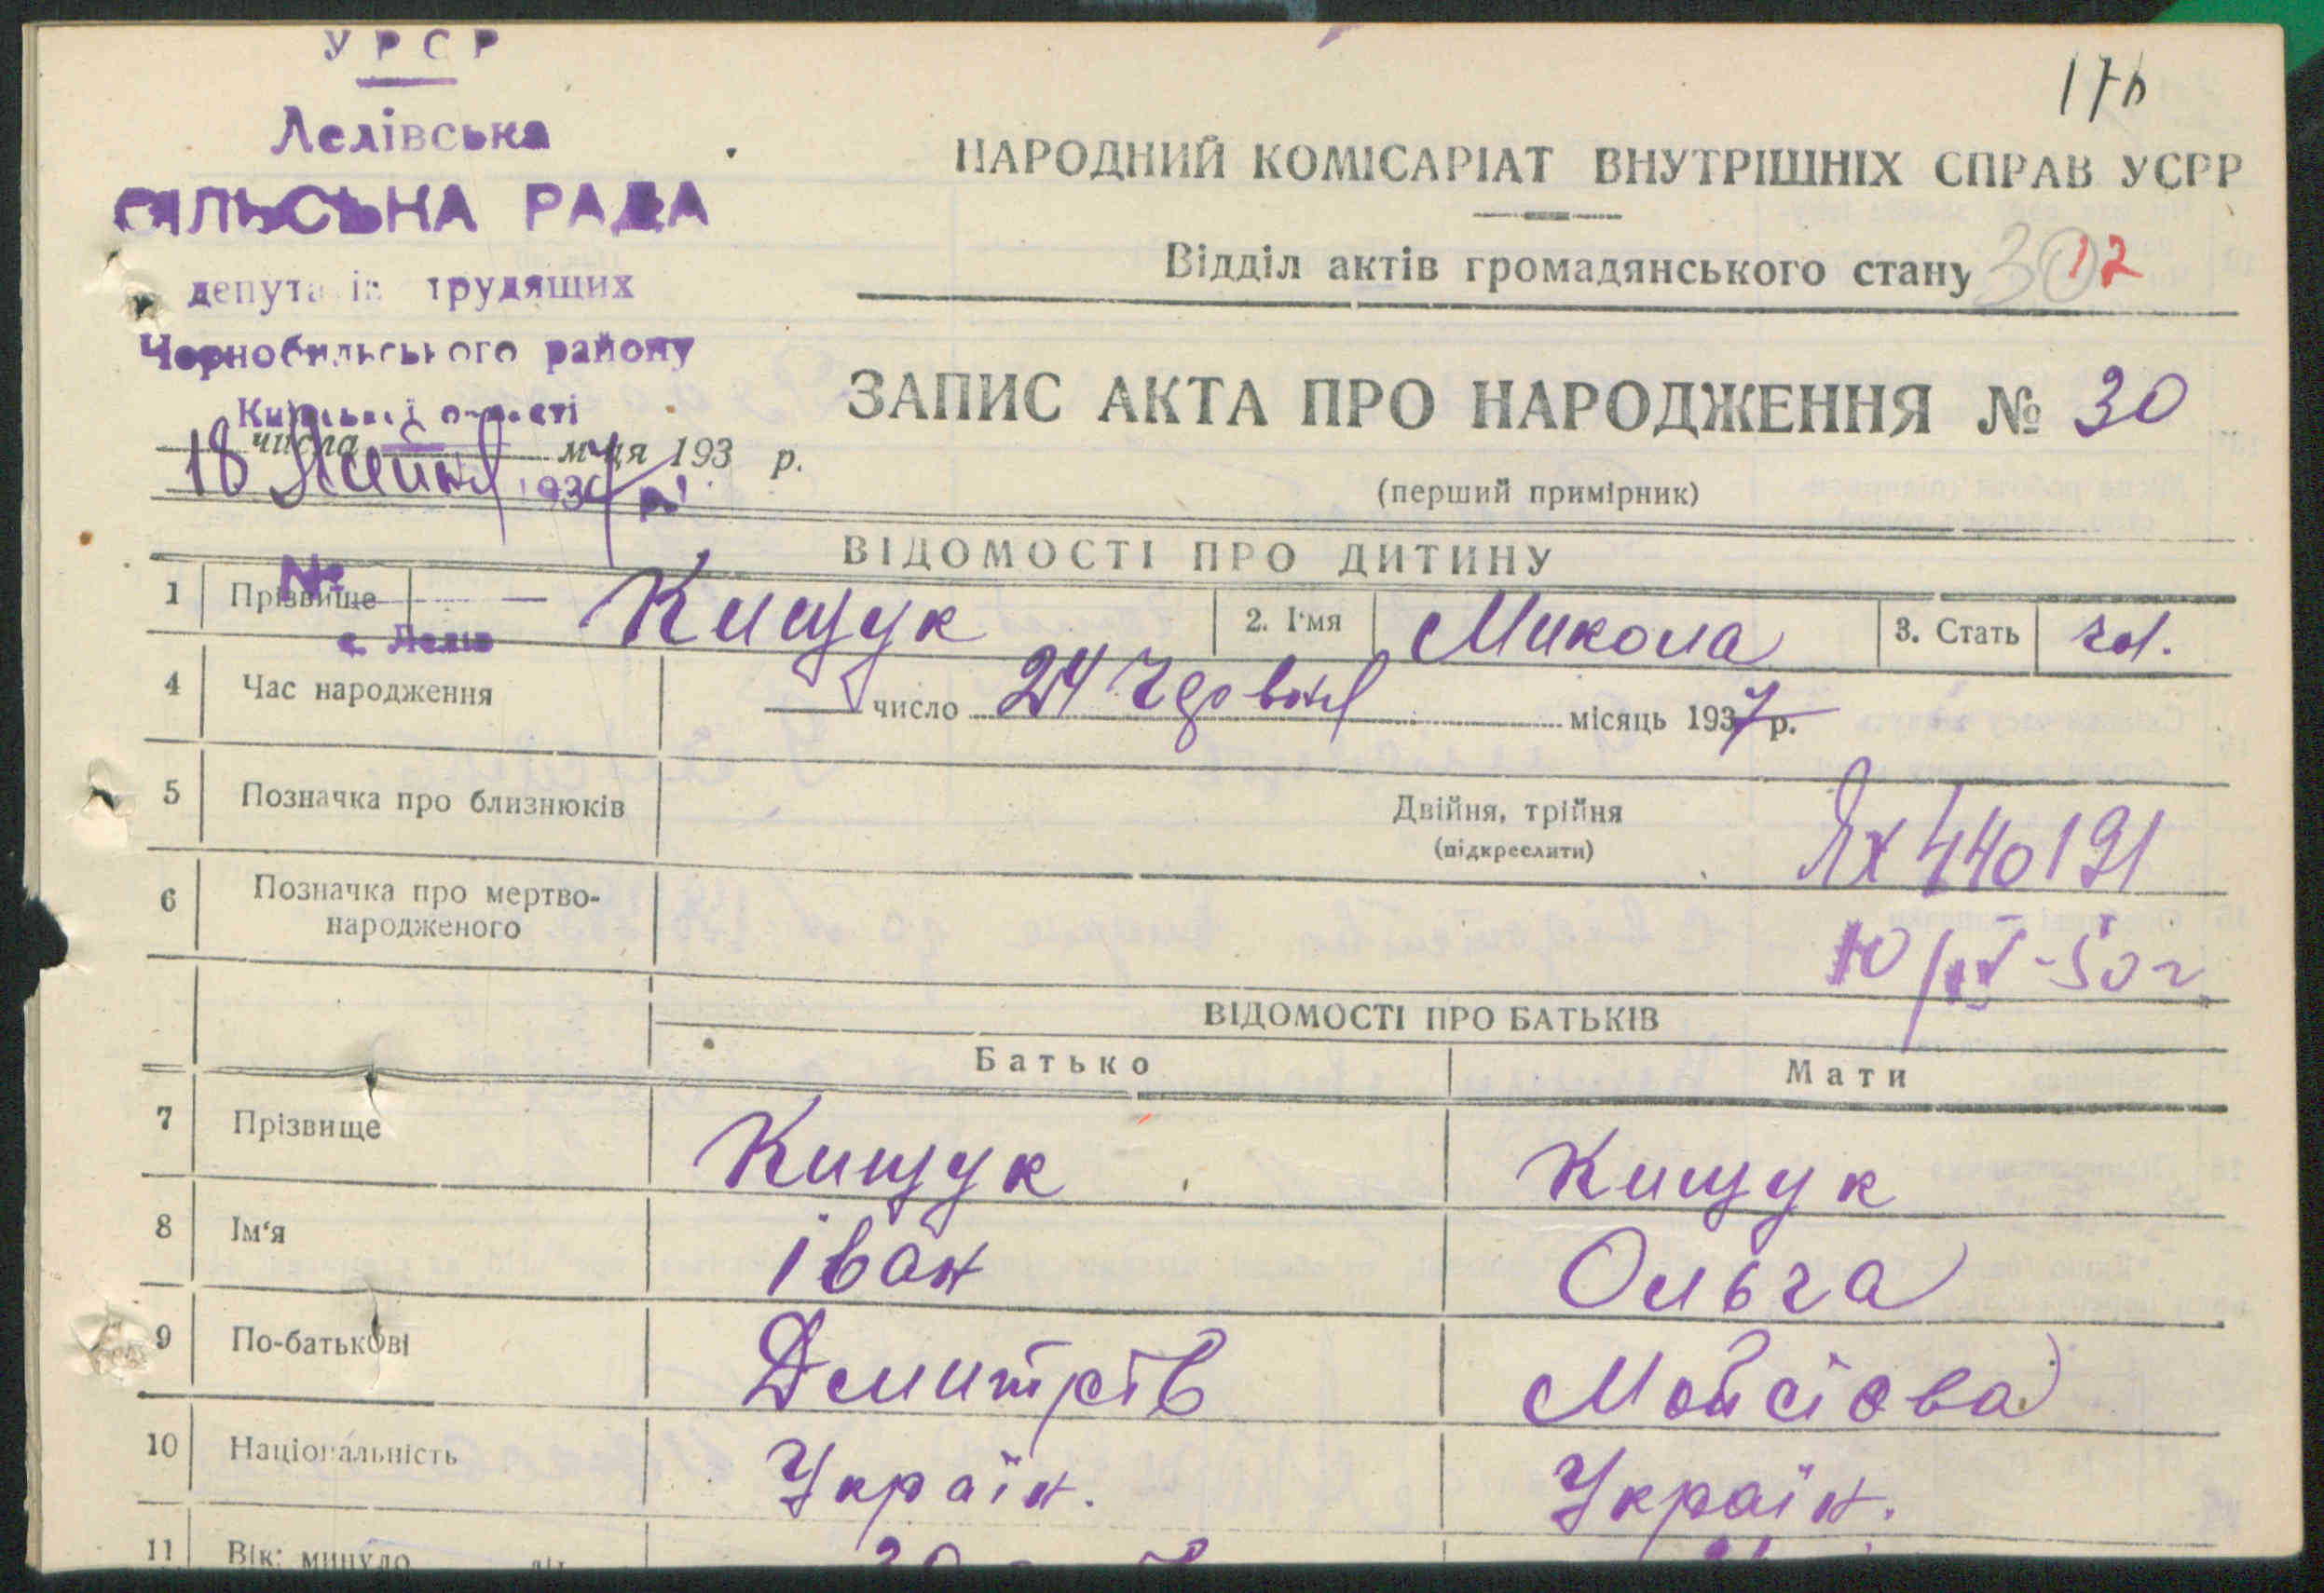 УРСР
Лелівська
СІЛЬСЬКА РАДА
депутатів трудящих
Чорнобильського району
Київської області
числа м-ця 193 р.
18 Липня 1937 р.
№
с. Лелів
НАРОДНИЙ КОМІСАРІАТ ВНУТРІШНІХ СПРАВ УСРР
Відділ актів громадянського стану 30 12
ЗАПИС АКТА ПРО НАРОДЖЕННЯ № 30
(перший примірник)
ВІДОМОСТІ ПРО ДИТИНУ
1 Прізвище Кищук 2. І'мя Микола 3. Стать чол.
4 Час народження число 24 Червня місяць 1937 р.
5 Позначка про близнюків Двійня, трійня
(підкреслити)
ЯХ 440191
6 Позначка про мертво-
народженого
10/IV-50 г
ВІДОМОСТІ ПРО БАТЬКІВ
Батько Мати
7 Прізвище Кищук Кищук
8 Ім'я Іван Ольга
9 По-батькові Дмитрів Мойсіова
10 Національність Україн. Україн.
11 Вік: минуло літ